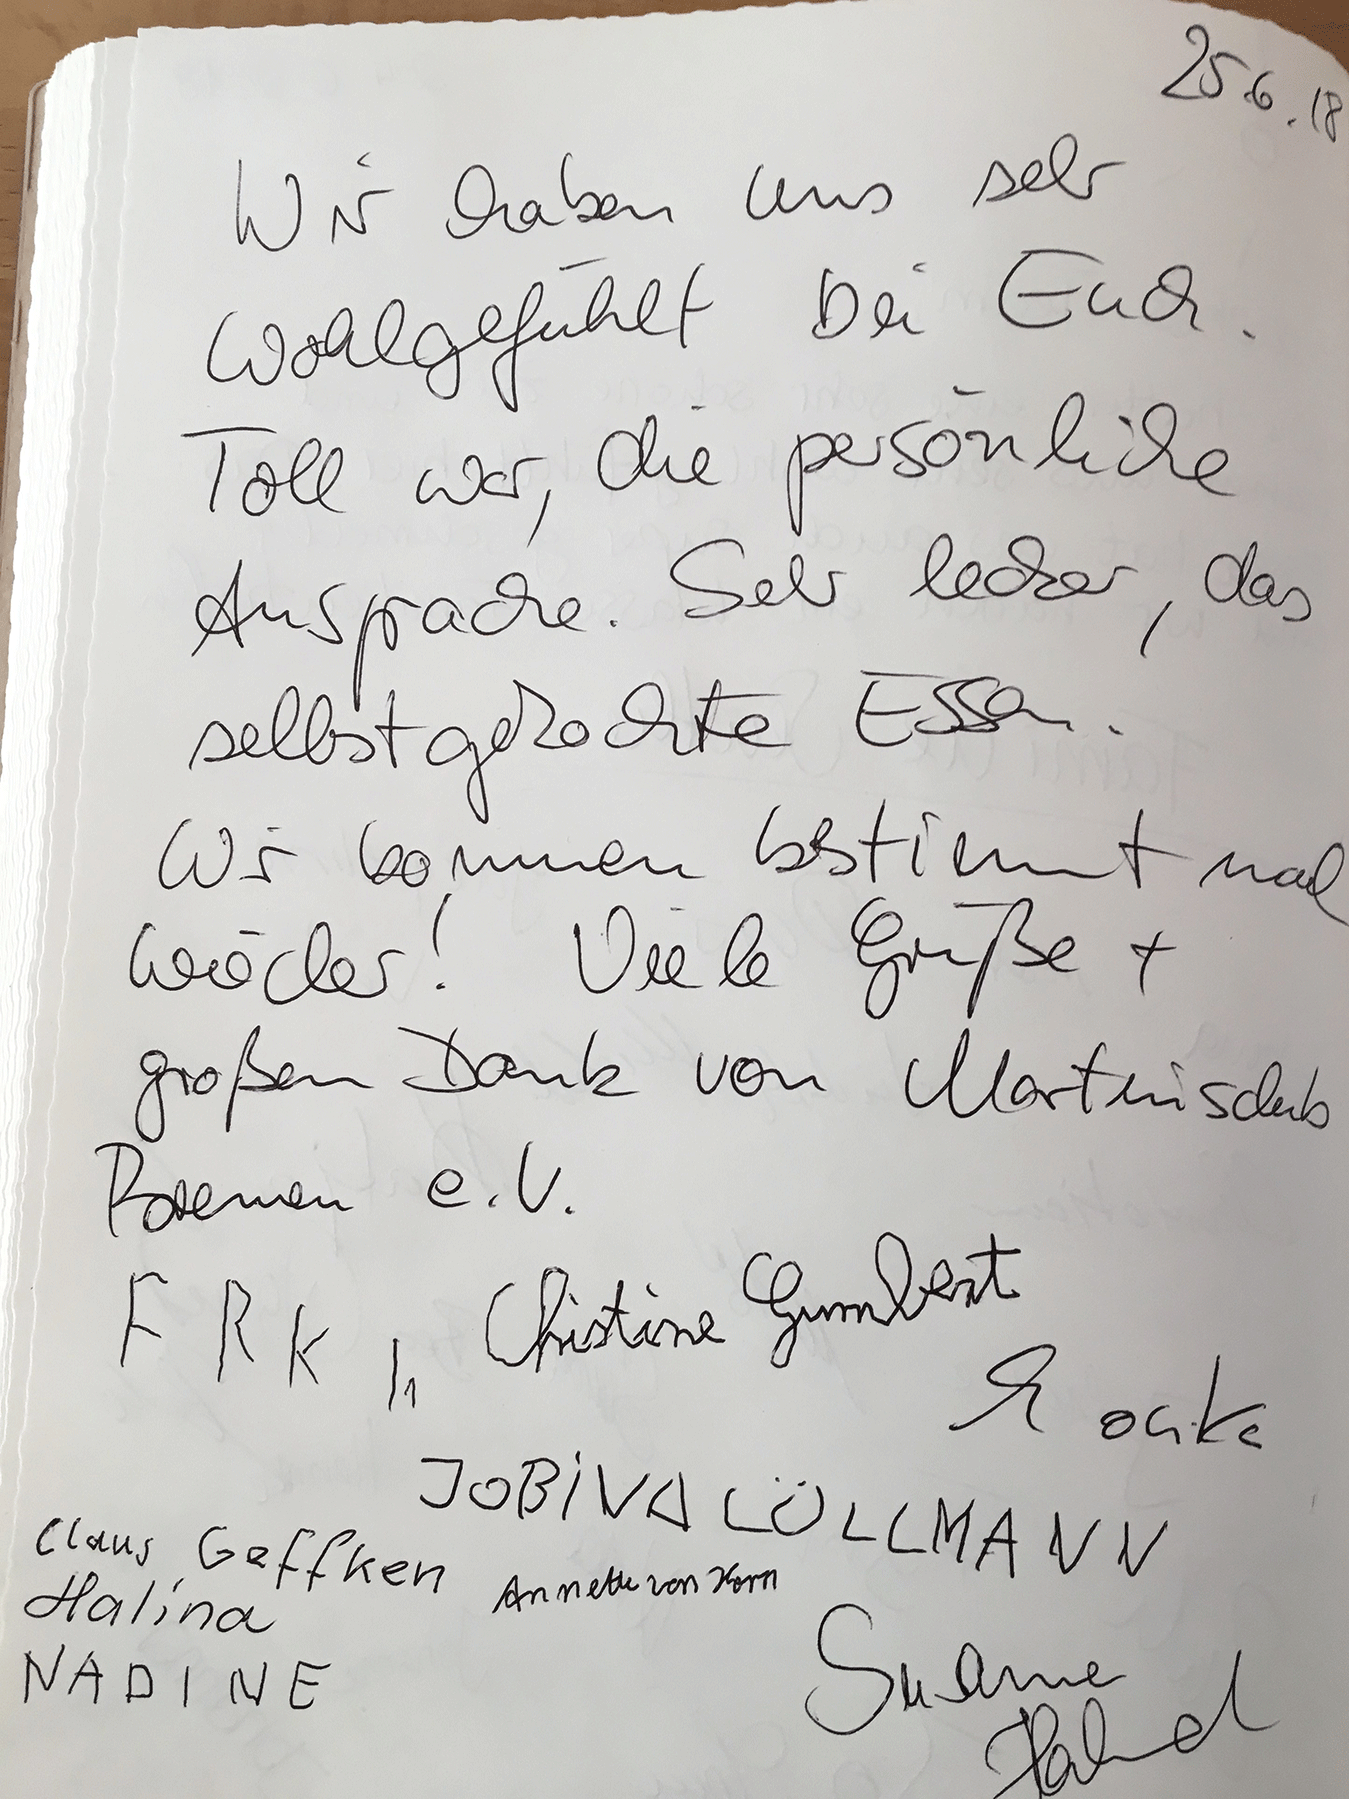 25.6.18
Wir haben uns sehr
wohlgefühlt bei Euch.
Toll war, die persönliche
Ansprache. Sehr lecker, das
selbstgekochte Essen.
Wir kommen bestimmt mal
wieder! Viele Grüße +
großen Dank von Martinsclub
Bremen e.V.
FRK, Christine Gumbert
JOBiNA LÜLLMANN
Claus Geffken
Annette von Horn
Halina
NADINE
Susanne